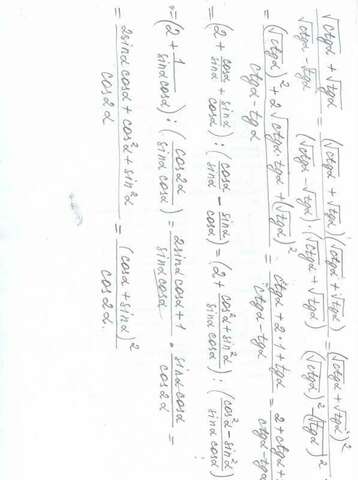 (√ctgα + √tgα)/(√ctgα - √tgα) = ((√ctgα + √tgα)(√ctgα + √tgα))/((√ctgα - √tgα)·(√ctgα + √tgα)) = (√ctgα + √tgα)²/((√ctgα)² - (√tgα)²)
= ((√ctgα)² + 2√ctgα·tgα + (√tgα)²)/(ctgα - tgα) = (ctgα + 2·1 + tgα)/(ctgα - tgα) = (2 + ctgα +)/(ctgα - tgα)
= (2 + cosα/sinα + sinα/cosα) : (cosα/sinα - sinα/cosα) = (2 + (cos²α + sin²α)/(sinα cosα)) : ((cos²α - sin²α)/(sinα cosα))
= (2 + 1/(sinα cosα)) : (cos2α/(sinα cosα)) = (2sinα cosα + 1)/(sinα cosα) · (sinα cosα)/(cos2α) =
= (2sinα cosα + cos²α + sin²α)/(cos2α) = (cosα + sinα)²/(cos2α).